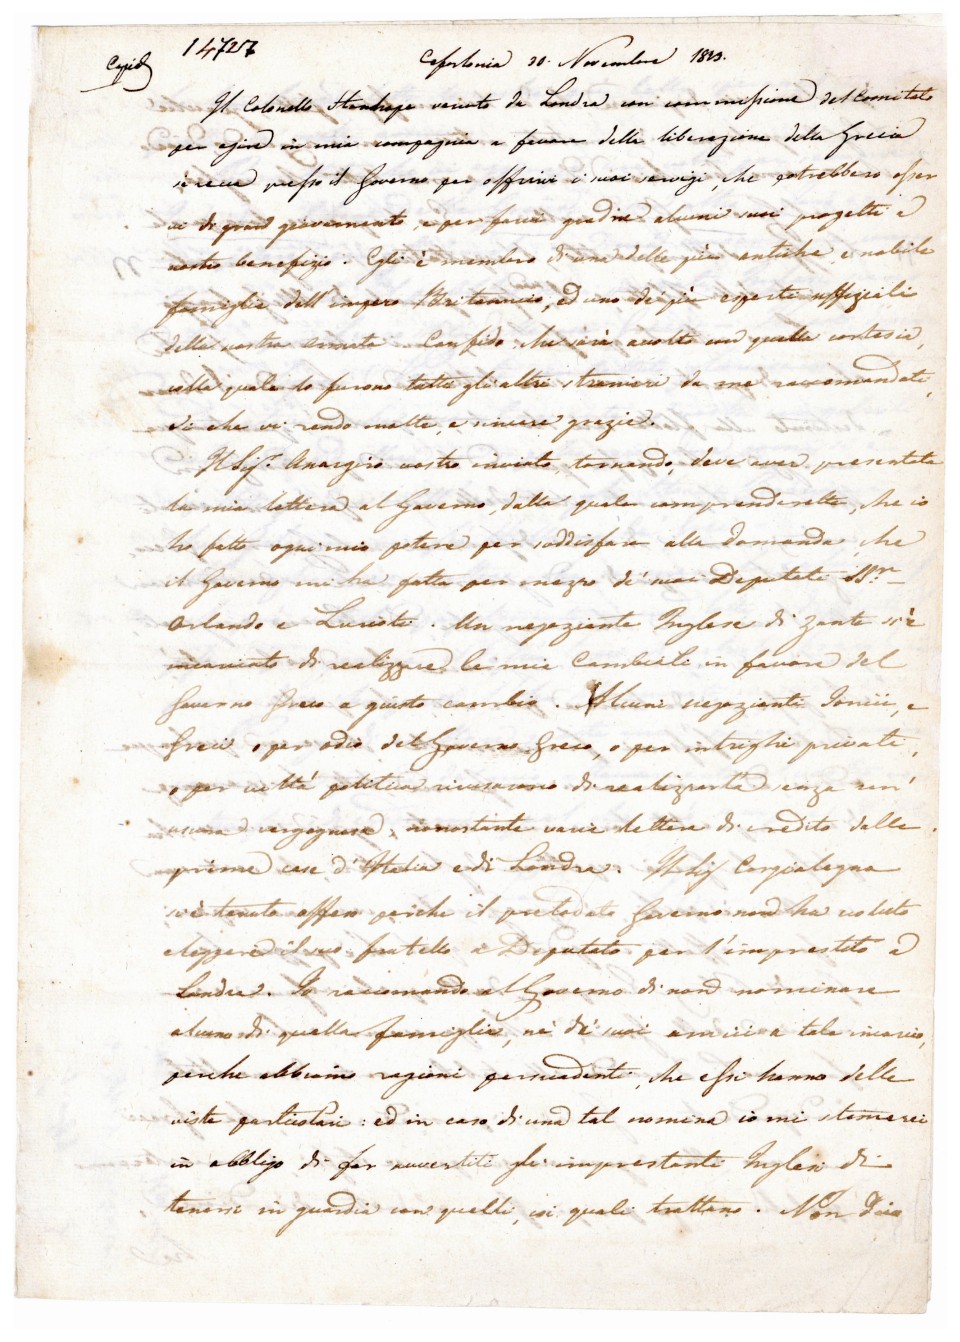 Copia
14727
Cefalonia 30. Novembre 1823.
Il Colonello Stanhope venuto da Londra con commissione del Comitato
per agire in mia compagnia a favore della liberazione della Grecia
si reca presso il Governo per offrirvi i suoi servigi, che potrebbero esser
vi di gran giovamento, e per farvi gradire alcuni suoi progetti a
vostro benefizio. Egli è membro di una delle più antiche, e nobile
famiglie dell'impero Britannico, ed uno dei più esperti uffiziali
della nostra armata. Confido che sarà accolto con quella cortesia,
colla quale lo furono tutti gli altri stranieri da me raccomandati,
di che vi rendo molte, e sincere grazie.
Il Sig.r Anargiro vostro inviato, tornando, deve aver presentata
la mia lettera al Governo, dalla quale comprenderete, che io
ho fatto ogni mio potere per soddisfare alla domanda, che
il Governo mi ha fatta per mezzo de' suoi Deputati SS.ri
Orlando e Luriotti. Un negoziante Inglese di Zante s'è
incaricato di realizzare le mie Cambiali in favore del
Governo Greco a giusto cambio. Alcuni negozianti Ionii, e
Greci o per odio del Governo Greco, o per intrighi privati,
o per viltà politica ricusarono di realizzarla senza un'
usura vergognosa, nonostante varie lettere di credito delle
prime case d'Italia e di Londra. Il Sig.r Corgialegna
s'è tenuto offeso perchè il prelodato Governo non ha voluto
eleggere il suo fratello a Deputato per l'imprestito a
Londra. Io raccomando al Governo di non nominare
alcuno di quella famiglia, nè de' suoi amici a tale incarico,
perchè abbiamo ragioni persuadenti, che essi hanno delle
viste particolari: ed in caso di una tal nomina io mi stimerei
in obbligo di far avvertiti gli imprestanti Inglesi di
tenersi in guardia con quelli, coi quali trattano. Non